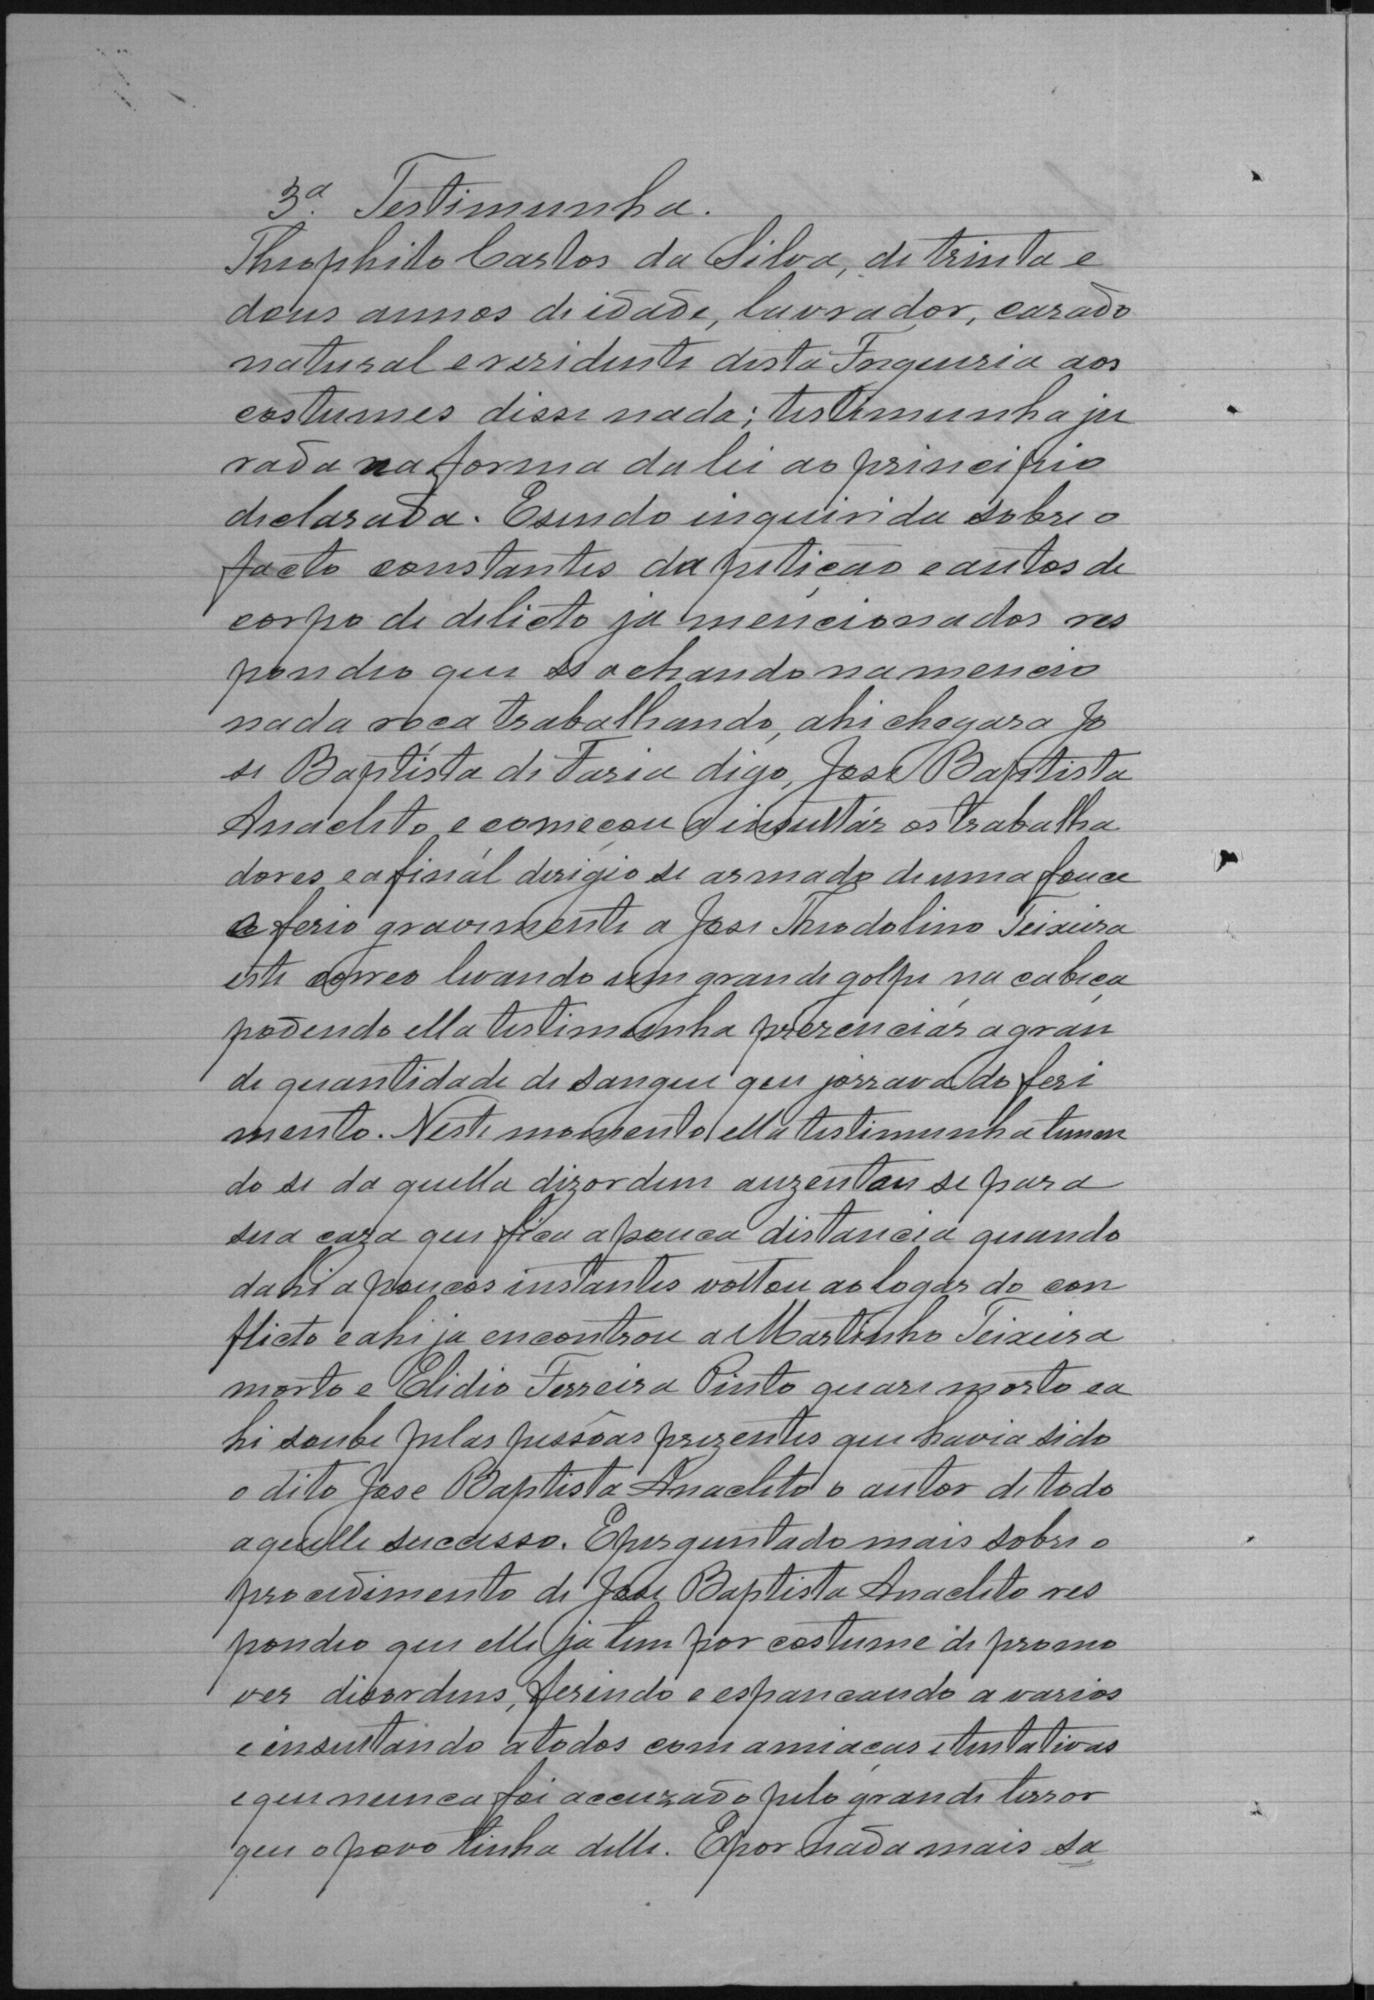 3ª. Testimunha.
Theophilo Carlos da Silva, de trinta e
dous annos de idade, lavrador, cazado
natural e rezidente desta Freguezia aos
costumes disse nada; testimunha ju
rada na forma da lei ao principio
declarada. E sendo inquirida sobre o
facto constantes da petição e autos de
corpo de delicto ja mencionados res
pondeo que se achando na mencio
nada roça trabalhando, ahi chegara Jo
se Baptista de Faria digo, José Baptista
Anacleto e começou a insultár os trabalha
dores e afinál derigio se armado de uma fouce
e ferio gravemente a Jose Theodolino Teixeira
este correo levando um grande golpe na cabeça
podendo ella testimunha prezenciár a gran
de quantidade de sangue que jorrava do feri
mento. Neste momento ella testimunha temen
do se da quella dizordem auzentou se para
sua caza que fica a pouca distancia quando
dahi a poucos instantes voltou ao logar do con
flicto e ahi ja encontrou a Martinho Teixeira
morto e Elidio Ferreira Pinto quase morto e a
hi soube pelas pessôas prezentes que havia sido
o dito Jose Baptista Anacleto o autor de todo
aquelle sucesso. E perguntado mais sobre o
procedimento de Jose Baptista Anacleto res
pondeo que elle ja tem por costume de promo
ver disordens, ferindo e espancando a varios
e insultando a todos com amiaças e tentativas
e que nunca foi accuzado pelo grande terror
que o povo tinha delle. E por nada mais sa